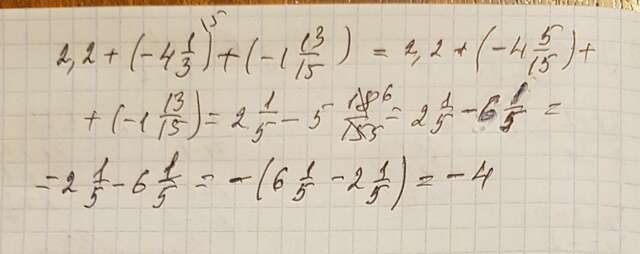 2,2 + (-4 1/3)^15 + (-1 13/15) = 2,2 + (-4 5/15) +
+ (-1 13/15) = 2 1/5 - 5 18^6/15 5 = 2 1/5 - 6 1/5 =
= 2 1/5 - 6 1/5 = - (6 1/5 - 2 1/5) = - 4